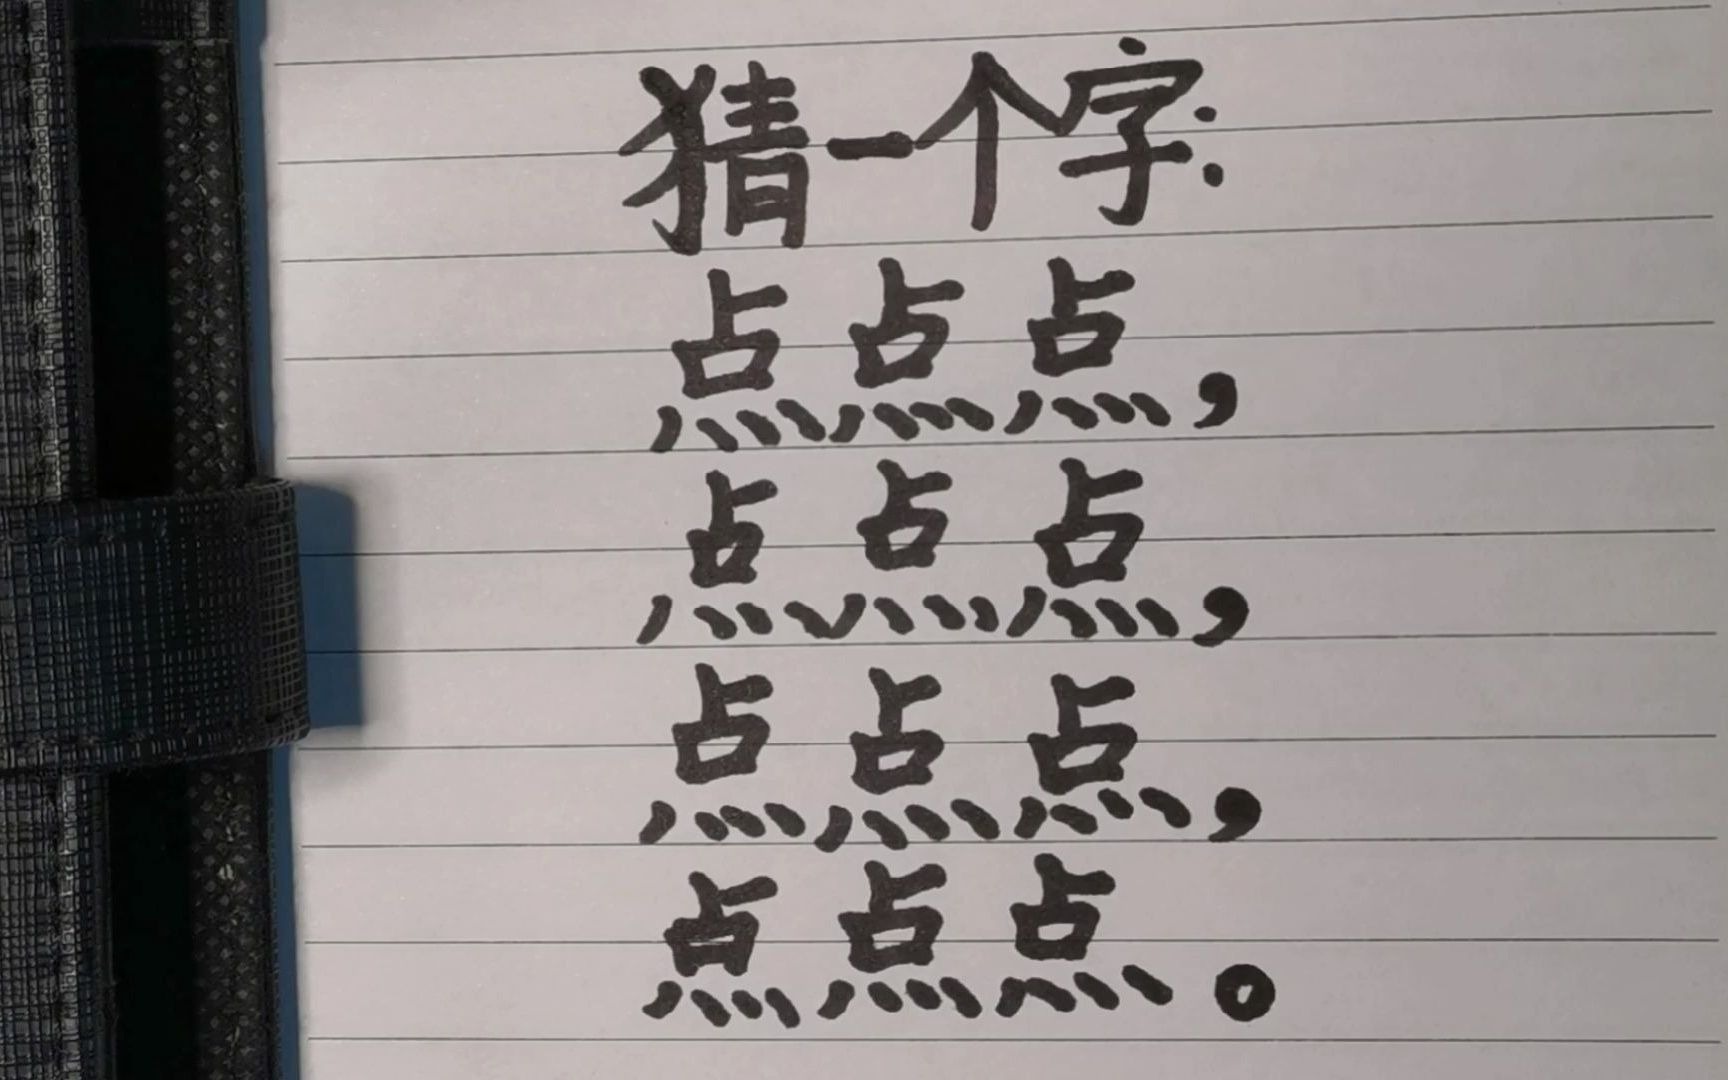 猜一个字:
点点点,
点点点,
点点点,
点点点。